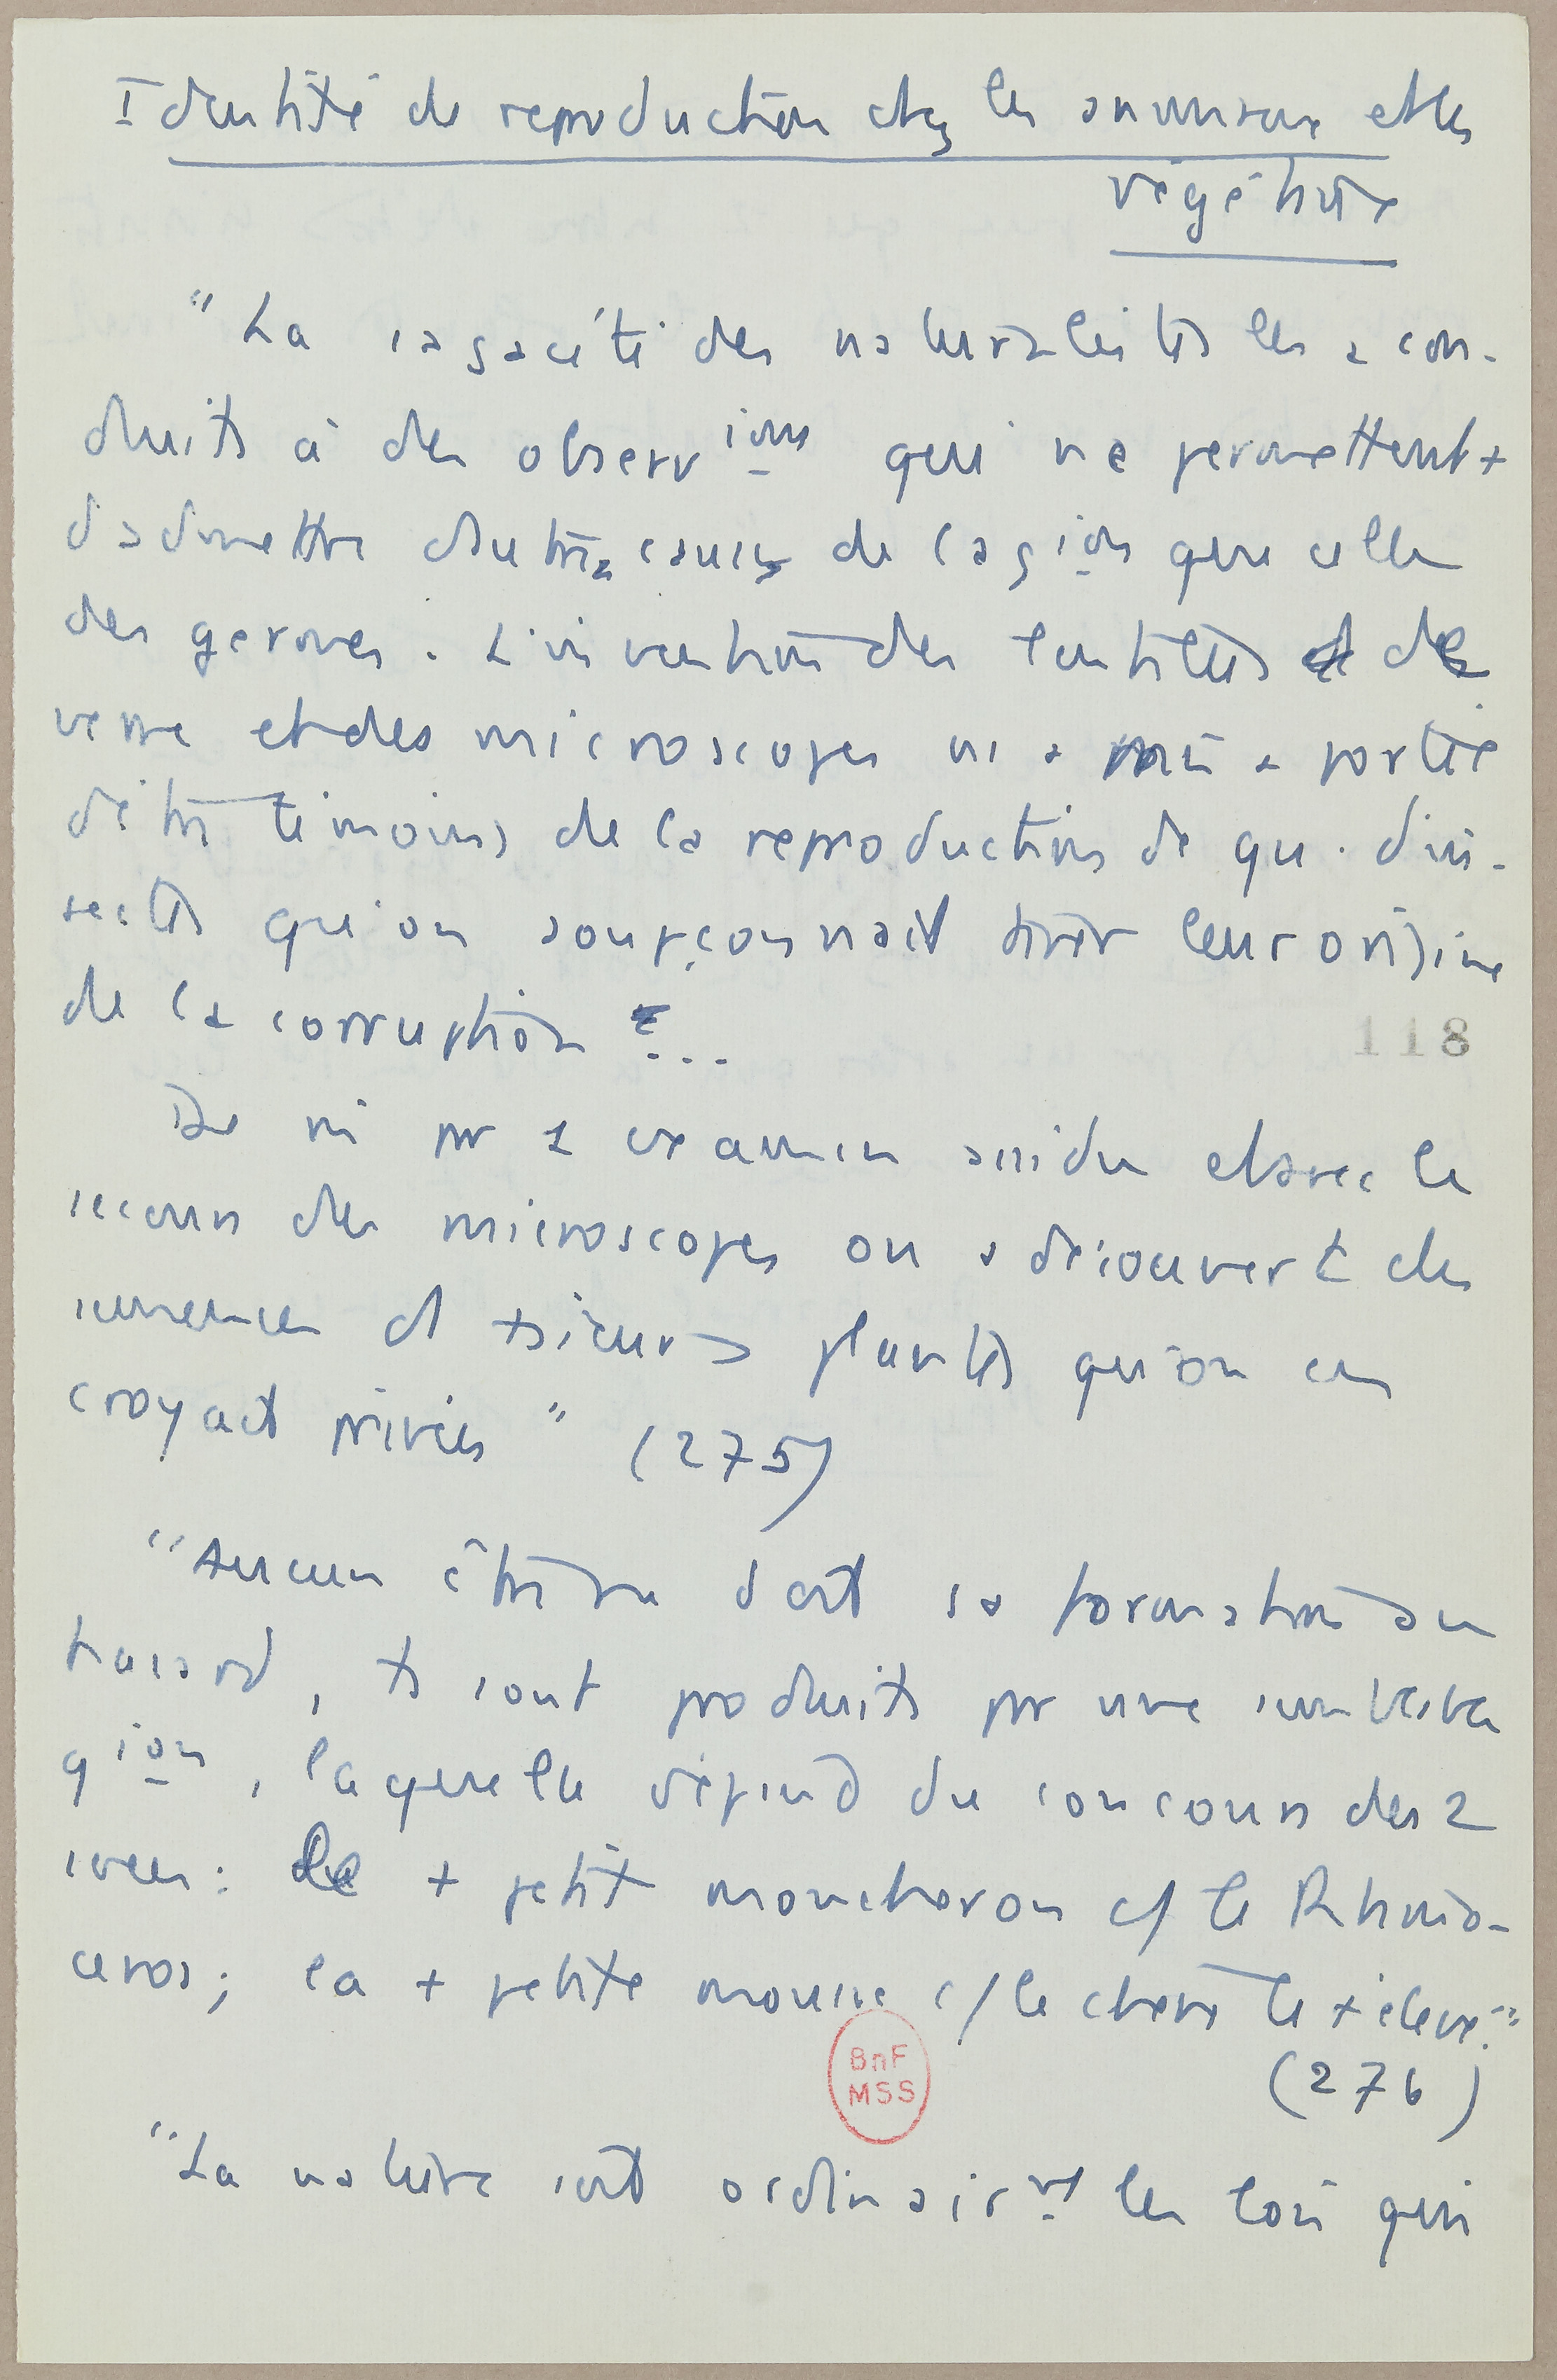 Identité de reproduction chez les animaux et les
végétaux
"La sagacité des naturalistes les a con-
duits à des observions qui ne permettent +
d'admettre d'autres causes de la gion que celle
des germes. L'invention des lentilles de
verre et des microscopes ns a mis à portée
d'être témoins de la reproduction de qu. d'in-
sectes qu'on soupçonnait tirer leur origine
de la corruption ...
118
De mi pr 1 examen assidu et avec le
secours des microscopes on a découvert des
semences ds +sieurs plantes qu'on en
croyait privées" (275)
"Aucun être ne doit sa formation au
hasard, ts sont produits pr une véritable
gion, laquelle dépend du concours des 2
sexes : le + petit moucheron c/ le Rhino-
ceros ; la + petite mousse c/ le chêne le + élevé."
(276)
BnF
MSS
"La nature suit ordinairnt les lois qui